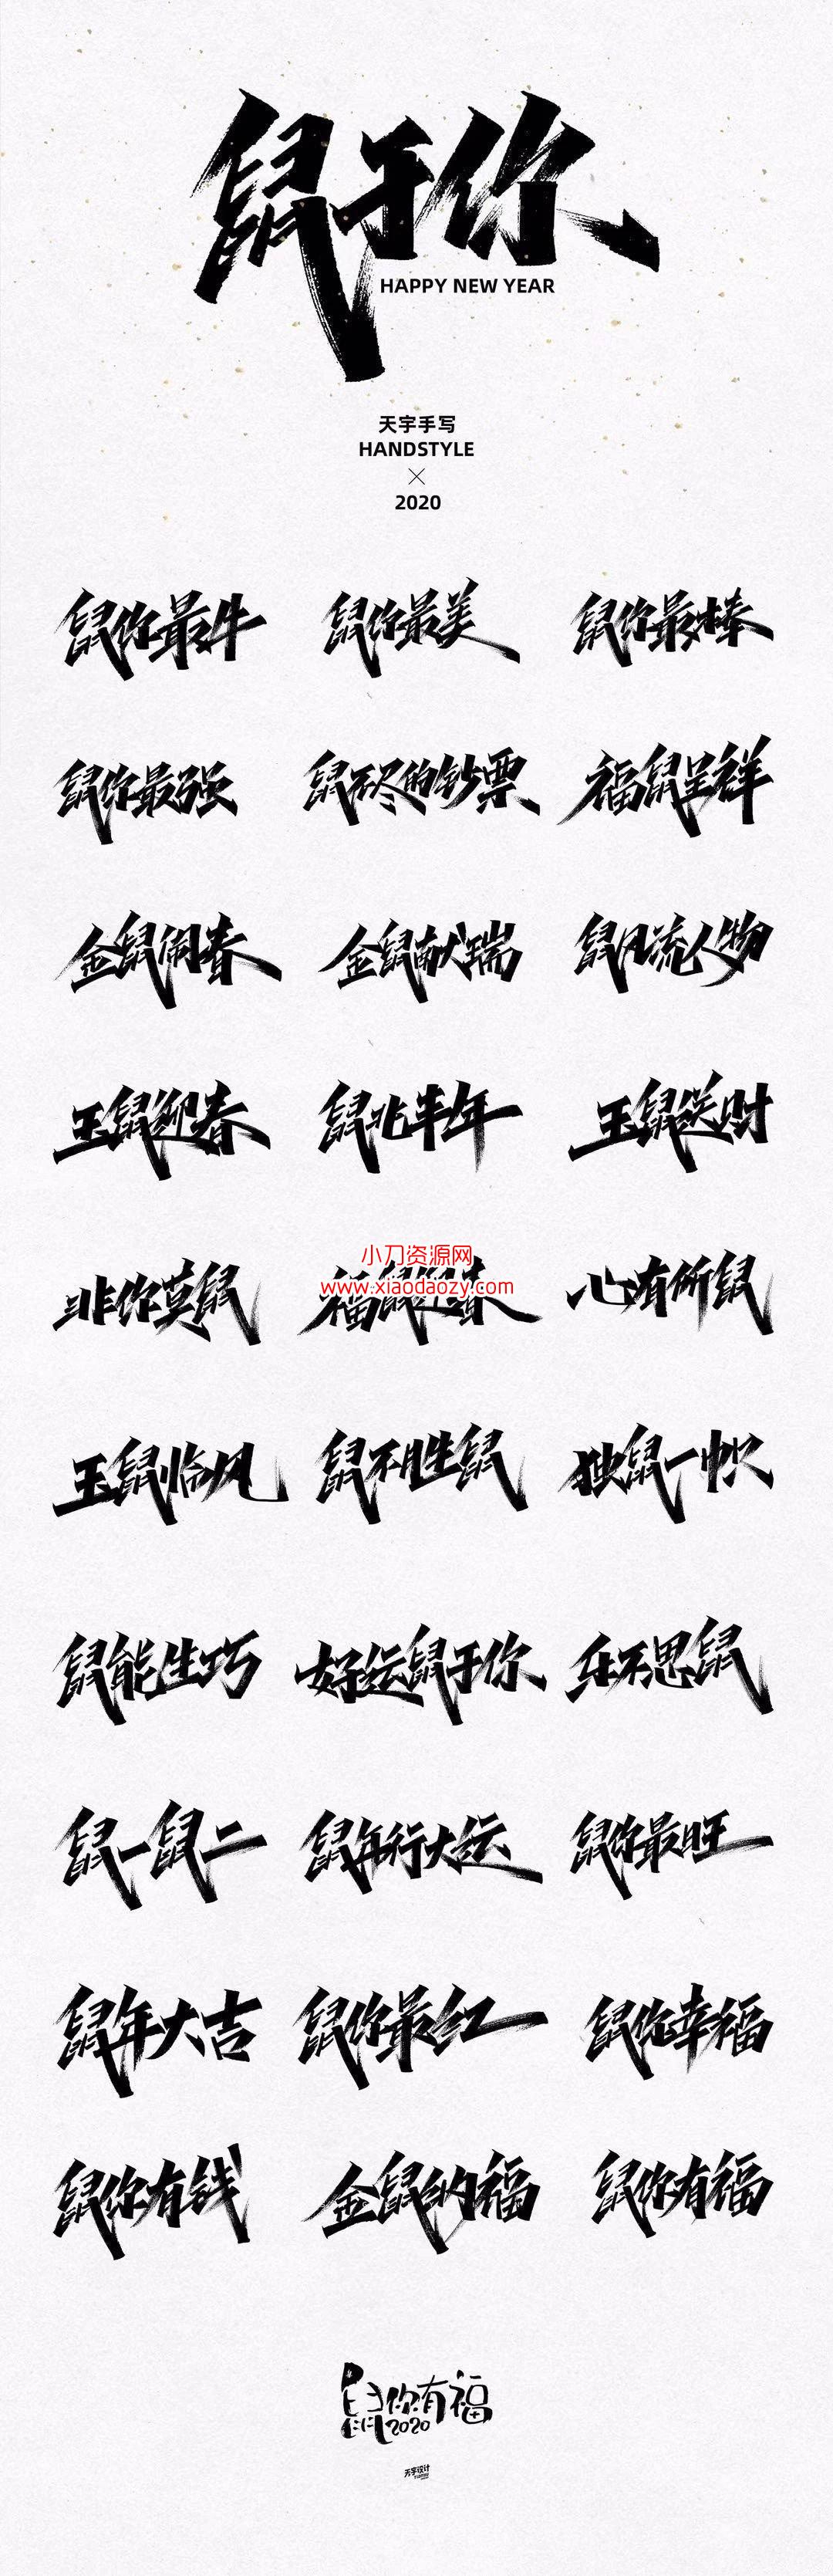 鼠于你
HAPPY NEW YEAR
天宇手写
HANDSTYLE
2020
鼠你最牛 鼠你最美 鼠你最棒
鼠你最强 鼠不尽的钞票 福鼠呈祥
金鼠闹春 金鼠献瑞 鼠风流人物
玉鼠迎春 鼠兆丰年 玉鼠送财
小刀资源网
www.xiaodaozy.com
非你莫鼠 福鼠迎春 心有所鼠
玉鼠临风 鼠不胜鼠 独鼠一帜
鼠能生巧 好运鼠于你 乐不思鼠
鼠一鼠二 鼠年行大运 鼠你最旺
鼠年大吉 鼠你最红 鼠你幸福
鼠你有钱 金鼠纳福 鼠你有福
鼠你有福
2020
天宇设计